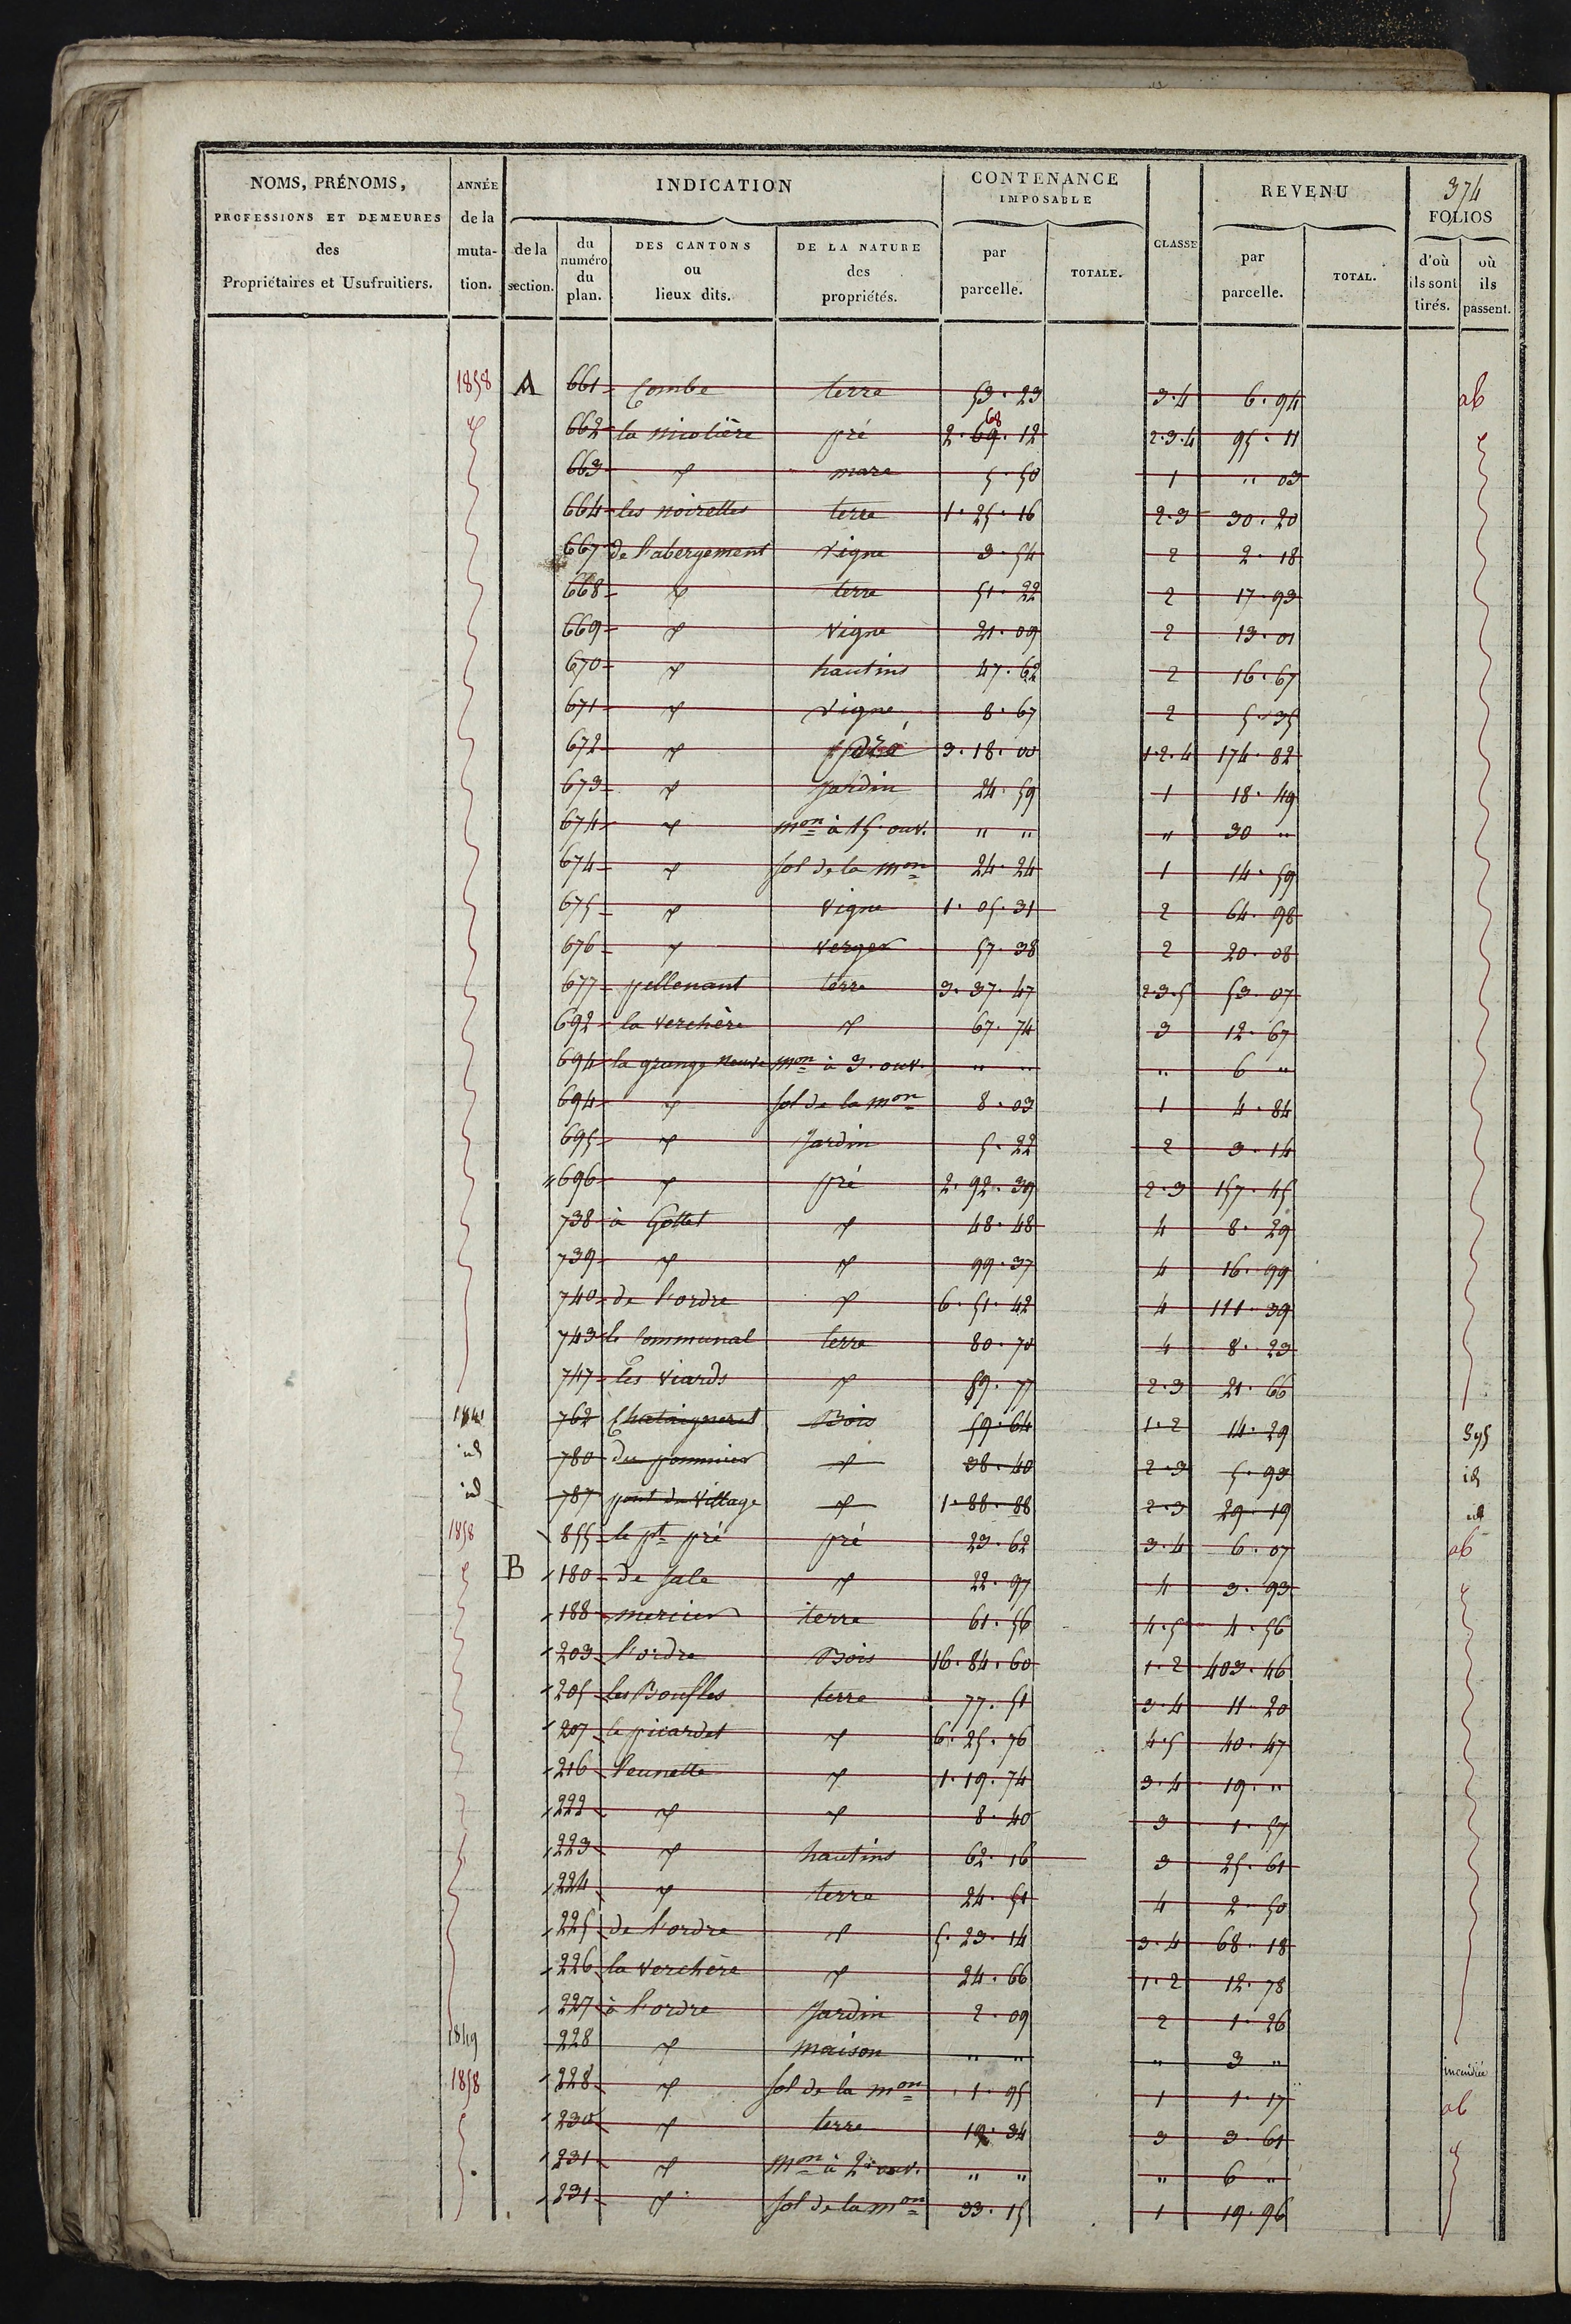 374
NOMS, PRÉNOMS, PROFESSIONS ET DEMEURES des Propriétaires et Usufruitiers.
ANNÉE de la mutation.
INDICATION
de la section.
du numéro du plan.
DES CANTONS ou lieux dits.
DE LA NATURE des propriétés.
CONTENANCE IMPOSABLE
par parcelle.
TOTALE.
CLASSE
REVENU
par parcelle.
TOTAL.
FOLIOS
d'où ils sont tirés.
où ils passent.
1858 A 661 Combe terre 53.23 3.4 6.94 ab
662 la nicolière pré 2.69.12 68 2.3.4 95.11
663 mare 5.50 1 " 03
664 les noirettes terre 1.25.16 2.3 30.20
667 de l'abergement vigne 3.54 2 2.18
668 terre 51.22 2 17.93
669 vigne 21.09 2 13.01
670 hautins 47.62 2 16.67
671 vigne 8.67 2 5.35
672 pré 3.18.00 1.2.4 174.82
673 jardin 24.59 1 18.49
674 mon à 15. ouv. " " " 30 "
674 sol de la mon 24.24 1 14.59
675 vigne 1.05.31 2 64.98
676 verger 57.38 2 20.08
677 pellenant terre 3.37.47 2.3.5 53.07
692 la verchère 67.74 3 12.67
694 la grange neuve mon à 3. ouv. " " " 6 "
694 sol de la mon 8.03 1 4.84
695 jardin 5.22 2 3.14
696 pré 2.92.39 2.3 157.45
738 à Gottet 48.48 4 8.29
739 99.37 4 16.99
740 de l'ordre 6.51.42 4 111.39
743 le Communal terre 80.70 4 8.23
747 les viards 59.77 2.3 21.66
1841 762 Chataigneret Bois 59.64 1.2 14.29 395
id 780 du pommier 38.40 2.3 5.93 id
id 787 pont du village 1.88.88 2.3 29.19 id
1858 855 le pt pré pré 23.62 3.4 6.07 ab
B 180 de sale 22.97 4 3.93
188 mercier terre 61.56 4.5 4.56
203 l'ordre Bois 16.84.60 1.2 403.46
205 les Boufles terre 77.51 3.4 11.20
207 le picardet 6.25.76 4.5 40.47
216 1.19.74 3.4 19."
222 8.40 3 1.57
223 hautins 62.16 3 25.61
224 terre 24.51 4 2.50
225 de l'ordre 5.23.14 3.4 68.18
226 la verchère 24.66 1.2 12.78
227 à l'ordre jardin 2.09 2 1.26
1849 228 maison " " " 3 " incendiée
1858 228 sol de la mon 1.95 1 1.17 ab
230 terre 19.34 3 3.61
231 mon à 2 ouv. " " " 6 "
231 sol de la mon 33.15 1 19.96